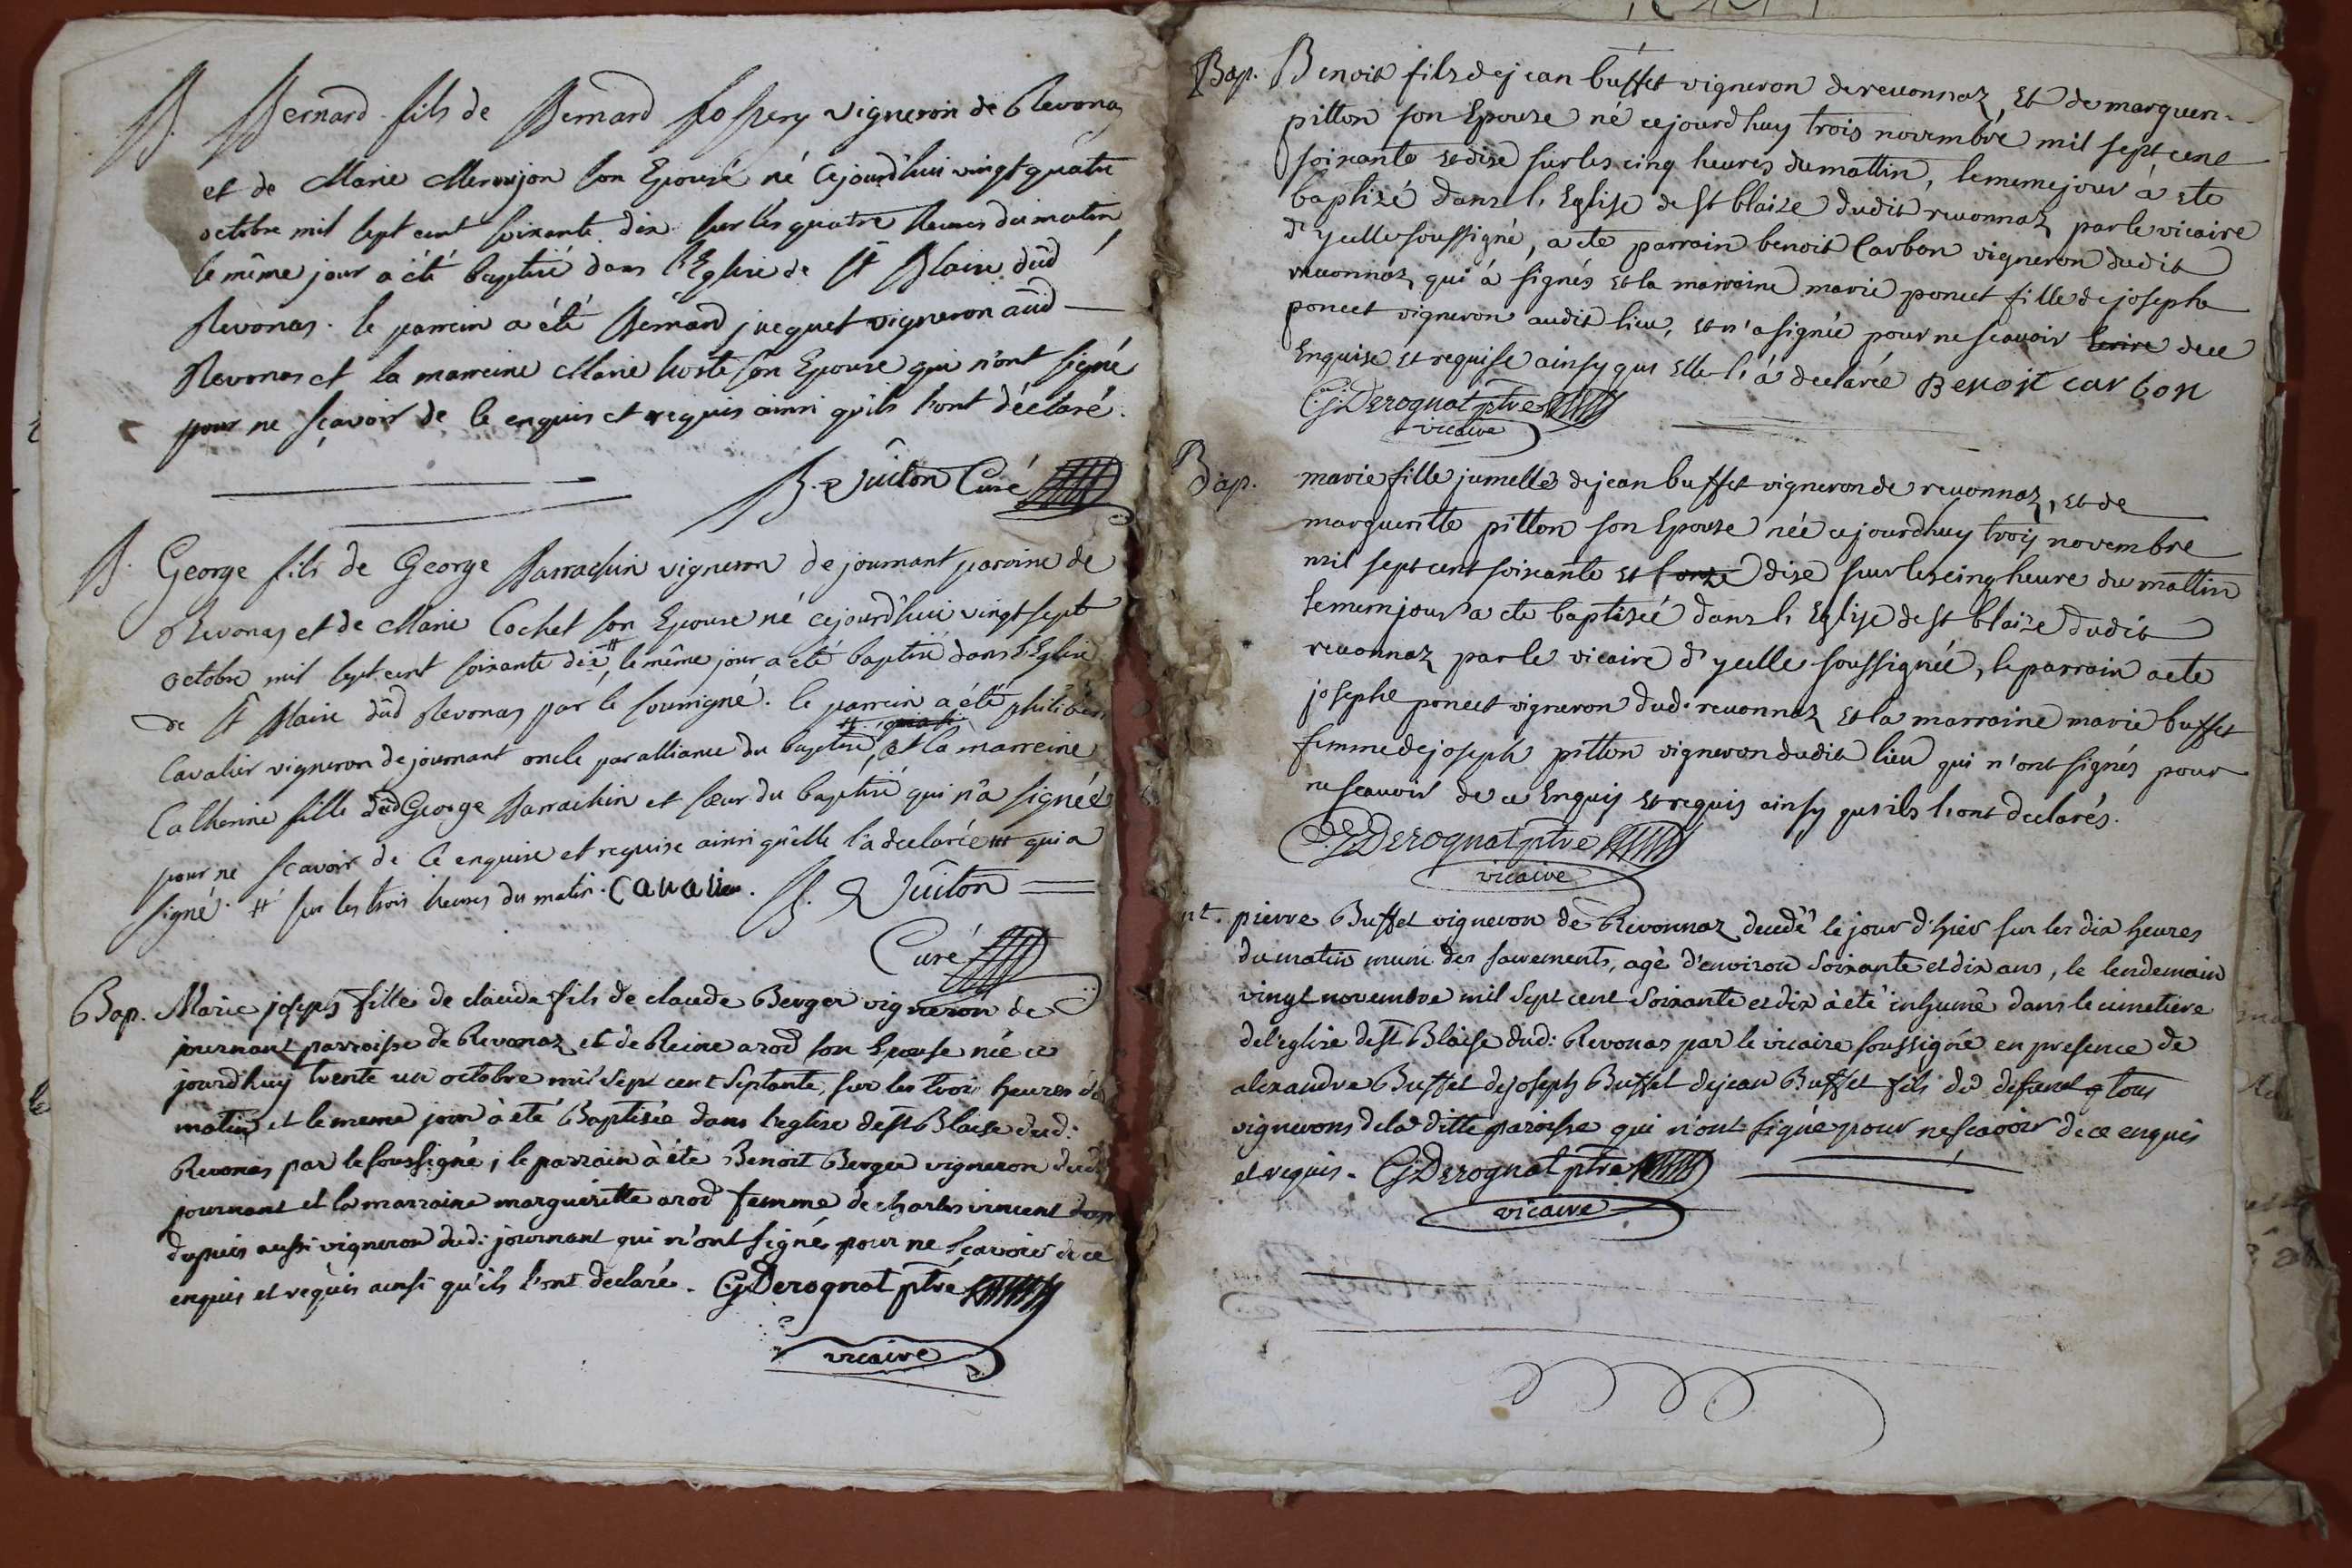 B. Bernard fils de Bernard vigneron de Revonas
et de Marie son Epouse né cejourd'hui vingt quatre
octobre mil sept cent soixante dix sur les quatre heures du matin,
le même jour a été baptisé dans l'Eglise de St Blaise dud
Revonas. le parrein a été Bernard jucquet vigneron aud
Revonas et la marreine Marie hoste son Epouse qui n'ont signé
pour ne sçavoir de ce enquis et requis ainsi qu'ils l'ont déclaré.
Curé
B. George fils de George Barrachin vigneron de journant paroisse de
Revonas et de Marie Cochet son Epouse né cejourd'hui vingt sept
octobre mil sept cent soixante dix #, le même jour a été baptisé dans l'Eglise
de St Blaise dud Revonas par le soussigné. le parrein a été philibert
Cavalier vigneron de journant oncle par alliance du baptisé, ## et la marreine
Catherine fille dud George Barrachin et sœur du baptisé qui n'a signée
pour ne scavoir de ce enquise et requise ainsi qu'elle l'a declarée ## qui a
signé. # sur les trois heures du matin. Cavalier.
Curé
Bap. Marie joseph fille de claude fils de claude Berger vigneron de
journant parroisse de Revonaz et de Reine arod son Epouse née ce
jourd'huy trente un octobre mil sept cent septante, sur les trois heures du
matin et le meme jour à eté Baptisée dans l'eglise de st Blaise dud:
Revonas par le soussigné; le parrain à été Benoit Berger vigneron dud:
journant et la marraine marguéritte arod femme de charles vincent
dupuis aussi vigneron dud: journant qui n'ont signés pour ne sçavoir de ce
enquis et requis ainsi qu'ils l'ont declaré. CJ Derognat ptre
vicaire
Bap. Benoit fils de jean buffet vigneron de reuonnaz, et de margueri-
pitton son Epouse né cejourdhuy trois novembre mil sept cent
soixante et dise sur les cinq heures du mattin, le meme jour à ete
baptizé dans l'Eglise de st blaize dudit reuonnaz par le vicaire
d'ycelle soussigné, a ete parrain benoit Carbon vigneron dudit
reuonnaz qui à signés et la marraine marie poncet fille de josephe
poncet vigneron audit lieu, et n'a signée pour ne scauoir Ecrire de ce
Enquise et requise ainsy que Elle l'à declarée Benoit carbon
CJ Derognat ptre
vicaire
Bap. marie fille jumelle de jean buffet vigneron de reuonnaz, et de
margueritte pitton son Epouse née cejourdhuy trois novembre
mil sept cent soixante et dise sur les cinq heure du mattin
le mem jour a ete baptisée dans l'Eglise de st blaize dudit
reuonnaz par le vicaire d'ycelle soussignée, le parrain a ete
josephe poncet vigneron dud. reuonnaz et la marraine marie buffet
femme de joseph pitton vigneron dudit lieu qui n'ont signés pour
ne scauoir de ce Enquis et requis ainsy que ils l'ont declarés.
CJ Derognat ptre
vicaire
nt. pierre Buffet vigneron de Revonnaz decedé le jour d'hier sur les dix heures
du matin muni des sacrements, agè d'environ soixante et dix ans, le lendemain
vingt novembre mil sept cent soixante et dix à eté inhumé dans le cimetiere
de l'eglise de st Blaise dud: Revonas par le vicaire soussignée en presence de
alexandre Buffet de joseph Buffet de jean Buffet fils du defunt tous
vignerons de la ditte paroisse qui n'ont signé pour ne scavoir de ce enquis
et requis. CJ Derognat ptre
vicaire